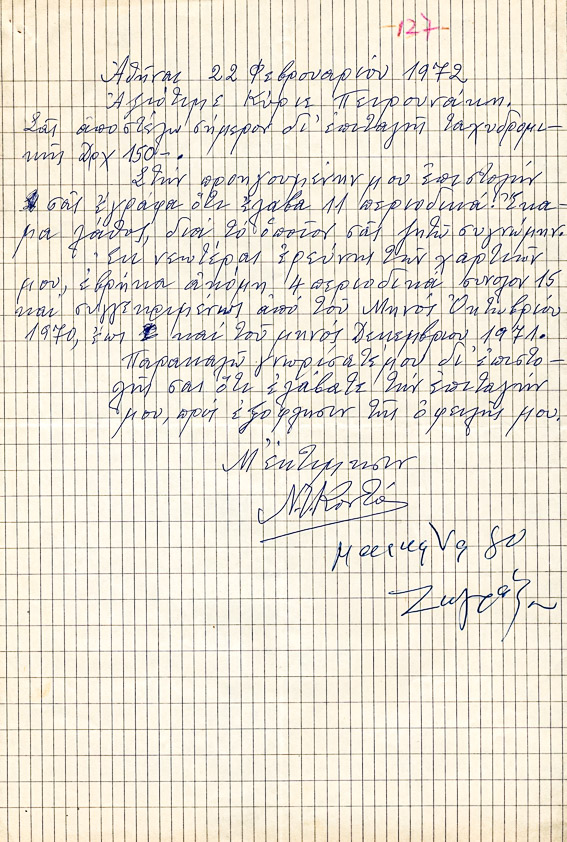 -127-
Ἀθῆναι 22 Φεβρουαρίου 1972
Ἀξιότιμε Κύριε Πετρουνάκη.
Σᾶς ἀποστέλω σήμερον δι' ἐπιταγῆς ταχυδρομι-
κῆς Δρχ 150-.
Στὴν προηγουμένην μου ἐπιστολὴν
σᾶς ἔγραφα ὅτι ἔλαβα 11 περιοδικα. Ἔκα-
μα λάθος, δια τὸ ὁποῖον σᾶς ζητῶ συγνώμην.
Ἐκ νεωτέρας ἐρεύνης τῶν χαρτιῶν
μου, εὑρῆκα ἀκόμη 4 περιοδικὰ συνολον 15
καὶ συγκεκριμένως ἀπὸ τοῦ Μηνὸς Ὀκτωβρίου
1970, ἕως καὶ τοῦ μηνὸς Δεκεμβριου 1971.
Παρακαλῶ γνωρίσατέ μου δι' ἐπιστο-
λῆς σας ὅτι ἐλάβατε τὴν ἐπιταγὴν
μου, πρὸς ἐξόφλησιν τῆς ὀφειλῆς μου.
Μ' ἐκτίμησιν
Ν. Κοντό
80
Ζωγράφου